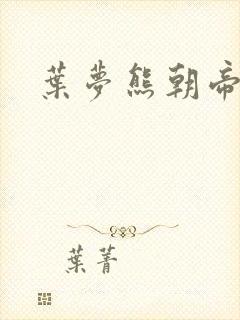 葉夢熊朝帝
葉菁